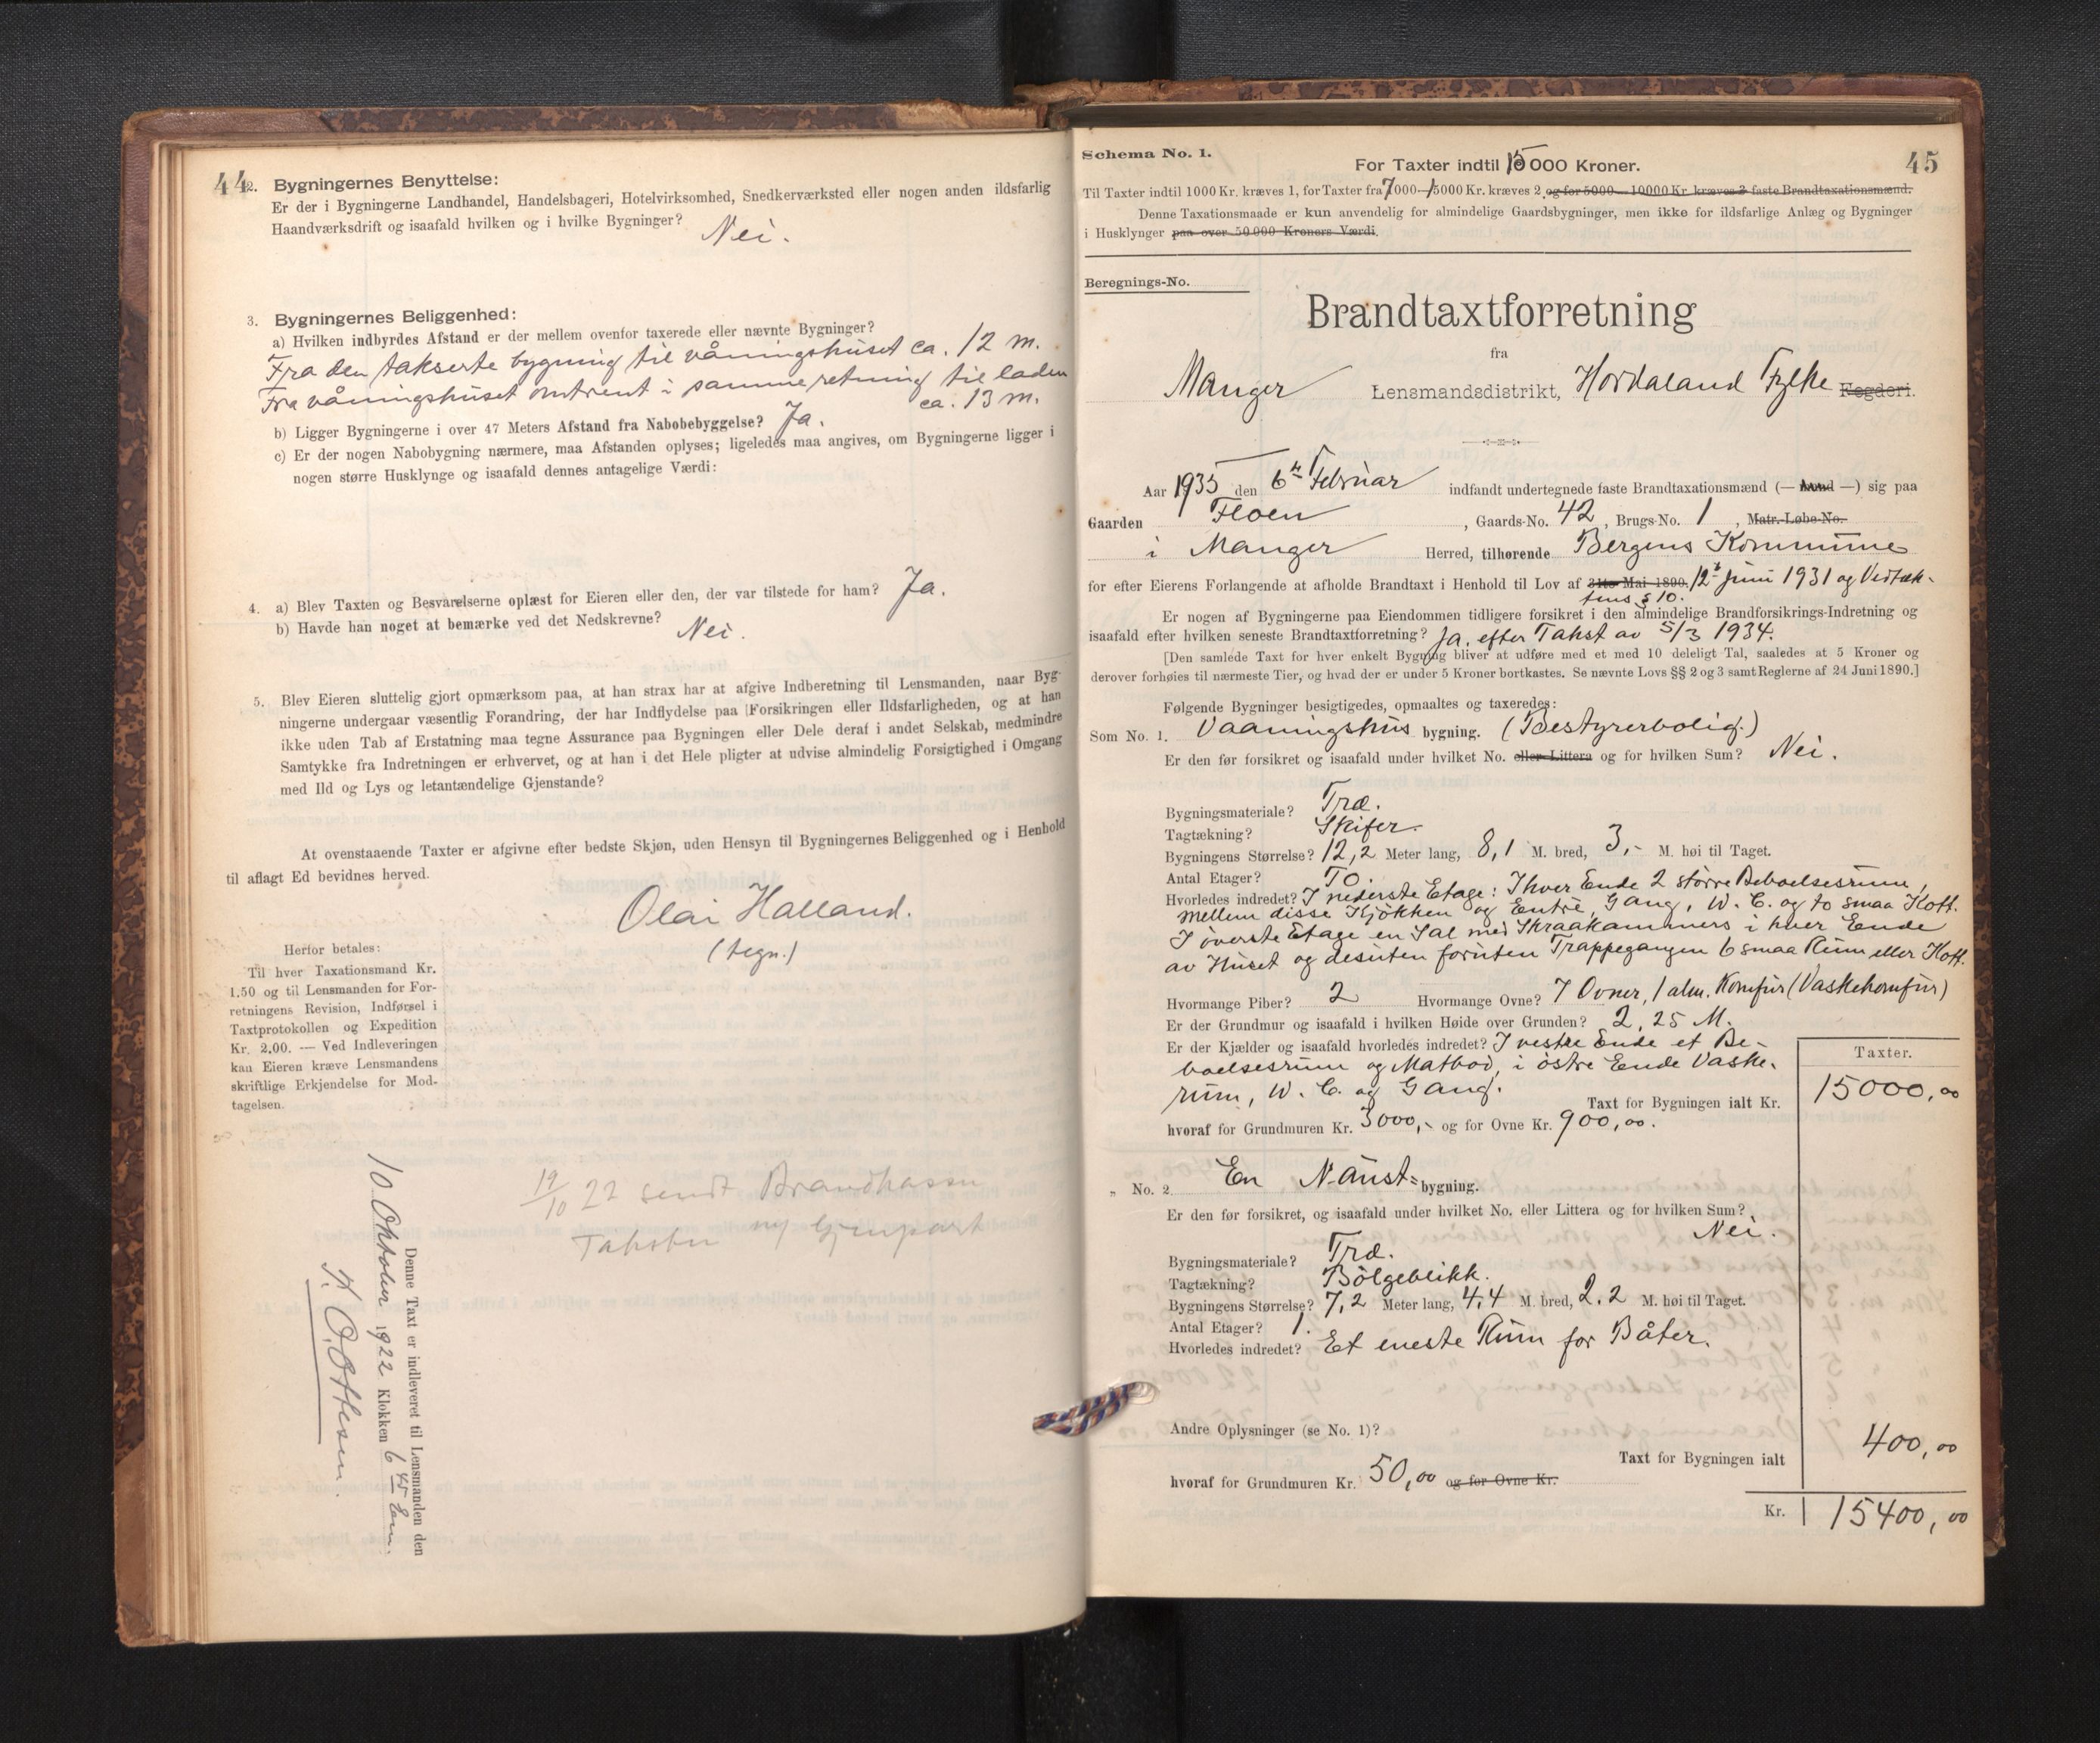 44
2. Bygningernes Benyttelse:
Er der i Bygningerne Landhandel, Handelsbageri, Hotelvirksomhed, Snedkerværksted eller nogen anden ildsfarlig
Haandværksdrift og isaafald hvilken og i hvilke Bygninger? Nei.
3. Bygningernes Beliggenhed:
a) Hvilken indbyrdes Afstand er der mellem ovenfor taxerede eller nævnte Bygninger?
Fra den takserte bygning til våningshuset ca. 12 m.
Fra våningshuset omtrent i samme retning til laden
ca. 13 m.
b) Ligger Bygningerne i over 47 Meters Afstand fra Nabobebyggelse? Ja.
c) Er der nogen Nabobygning nærmere, maa Afstanden oplyses; ligeledes maa angives, om Bygningerne ligger i
nogen større Husklynge og isaafald dennes antagelige Værdi:
4. a) Blev Taxten og Besvarelserne oplæst for Eieren eller den, der var tilstede for ham? Ja.
b) Havde han noget at bemærke ved det Nedskrevne? Nei.
5. Blev Eieren sluttelig gjort opmærksom paa, at han strax har at afgive Indberetning til Lensmanden, naar Byg-
ningerne undergaar væsentlig Forandring, der har Indflydelse paa Forsikringen eller Ildsfarligheden, og at han
ikke uden Tab af Erstatning maa tegne Assurance paa Bygningen eller Dele deraf i andet Selskab, medmindre
Samtykke fra Indretningen er erhvervet, og at han i det Hele pligter at udvise almindelig Forsigtighed i Omgang
med Ild og Lys og letantændelige Gjenstande?
At ovenstaaende Taxter er afgivne efter bedste Skjøn, uden Hensyn til Bygningernes Beliggenhed og i Henhold
til aflagt Ed bevidnes herved.
Olai Halland.
(tegn.)
Herfor betales:
Til hver Taxationsmand Kr.
1.50 og til Lensmanden for For-
retningens Revision, Indførsel i
Taxtprotokollen og Expedition
Kr. 2.00. — Ved Indleveringen
kan Eieren kræve Lensmandens
skriftlige Erkjendelse for Mod-
tagelsen.
19/10 22 sendt Brandkassen
Taksten ny Gjenpart
Denne Taxt er indleveret til Lensmanden den
10 Oktober 1922 Klokken 6 45 Em.
K. O. Ottesen.
Schema No. 1.
45
For Taxter indtil 15000 Kroner.
Til Taxter indtil 1000 Kr. kræves 1, for Taxter fra 7000—15000 Kr. kræves 2 og for 5000—10000 Kr. kræves 3 faste Brandtaxationsmænd.
Denne Taxationsmaade er kun anvendelig for almindelige Gaardsbygninger, men ikke for ildsfarlige Anlæg og Bygninger
i Husklynger paa over 50 000 Kroners Værdi.
Beregnings-No.
Brandtaxtforretning
fra
Manger Lensmandsdistrikt, Hordaland Fylke Fogderi.
Aar 1935 den 6te Februar indfandt undertegnede faste Brandtaxationsmænd (— mand —) sig paa
Gaarden Floen, Gaards-No. 42, Brugs-No. 1, Matr.-Løbe-No.
i Manger Herred, tilhørende Bergens Kommune
for efter Eierens Forlangende at afholde Brandtaxt i Henhold til Lov af 31te Mai 1890. 12te juni 1931 og Vedtæk-
tens § 10.
Er nogen af Bygningerne paa Eiendommen tidligere forsikret i den almindelige Brandforsikrings-Indretning og
isaafald efter hvilken seneste Brandtaxtforretning? Ja, efter Takst av 5/3 1934.
[Den samlede Taxt for hver enkelt Bygning bliver at udføre med et med 10 deleligt Tal, saaledes at 5 Kroner og
derover forhøies til nærmeste Tier, og hvad der er under 5 Kroner bortkastes. Se nævnte Lovs §§ 2 og 3 samt Reglerne af 24 Juni 1890.]
Følgende Bygninger besigtigedes, opmaaltes og taxeredes:
Som No. 1. Vaaningshus bygning. (Bestyrerbolig.)
Er den før forsikret og isaafald under hvilket No. eller Littera og for hvilken Sum? Nei.
Bygningsmateriale? Træ.
Tagtækning? Skifer.
Bygningens Størrelse? 12,2 Meter lang, 8,1 M. bred, 3,- M. høi til Taget.
Antal Etager? To.
Hvorledes indredet? I nederste Etage: I hver Ende 2 større Beboelsesrum,
mellem disse Kjøkken og Entré, Gang, W. C. og to smaa Kott.
I øverste Etage en Sal med Skraakammers i hver Ende
av Huset og desuten foruten Trappegangen 6 smaa Rum eller Kott.
Hvormange Piber? 2 Hvormange Ovne? 7 Ovner, 1 alm. Komfur (Vaskekomfur)
Er der Grundmur og isaafald i hvilken Høide over Grunden? 2,25 M.
Er der Kjælder og isaafald hvorledes indredet? I vestre Ende et Be-
boelsesrum og Matbod, i østre Ende Vaske-
rum, W. C. og Gang.
Taxter.
Taxt for Bygningen ialt Kr. 15000,00
hvoraf for Grundmuren Kr. 3000,- og for Ovne Kr. 900,00.
„ No. 2. En Naust= bygning.
Er den før forsikret, og isaafald under hvilket No. eller Littera og for hvilken Sum?
Nei.
Bygningsmateriale? Træ.
Tagtækning? Bølgeblikk.
Bygningens Størrelse? 7,2 Meter lang, 4,4 M. bred, 2,2 M. høi til Taget.
Antal Etager? 1.
Hvorledes indredet? Et eneste Rum for Båter.
Andre Oplysninger (se No. 1)?
Taxt for Bygningen ialt 400,00
hvoraf for Grundmuren Kr. 50,00 og for Ovne Kr.
Kr. 15400,00